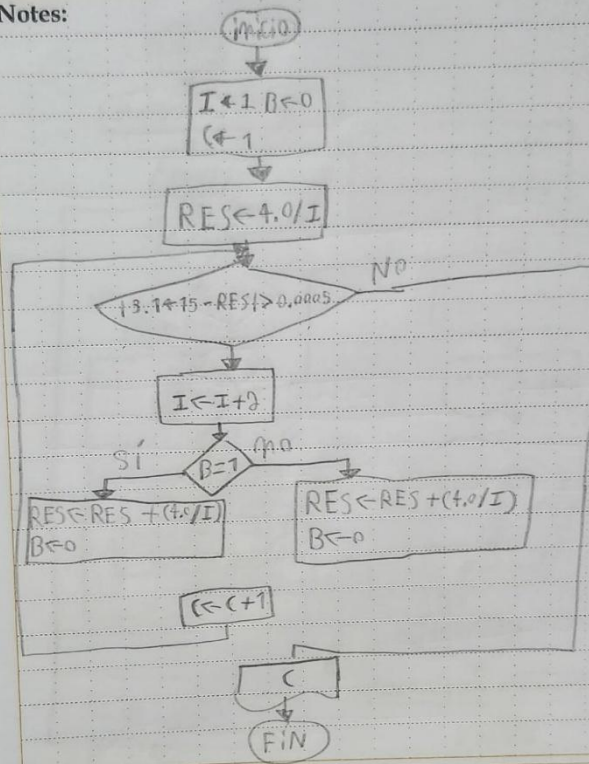 Notes:
inicio
I ← 1 B ← 0
C ← 1
RES ← 4.0/I
|3.1415 - RES| > 0.0005
No
I ← I+2
B=1
Sí
no
RES ← RES + (4.0/I)
B ← 0
RES ← RES + (4.0/I)
B ← 0
C ← C+1
C
FiN